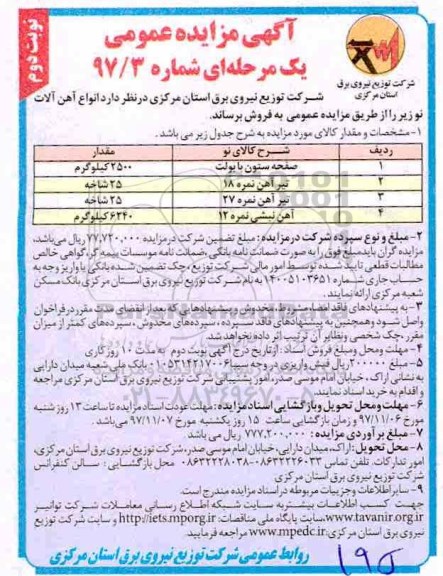 نوبت دوم
آگهی مزایده عمومی
یک مرحله‌ای شماره ۹۷/۳
شرکت توزیع نیروی برق
استان مرکزی
شرکت توزیع نیروی برق استان مرکزی درنظر دارد انواع آهن آلات
نو زیر را از طریق مزایده عمومی به فروش برساند.
۱- مشخصات و مقدار کالای مورد مزایده به شرح جدول زیر می باشد .
ردیف شــرح کالای نو مقدار
۱ صفحه ستون با پولت ۲۵۰۰ کیلوگرم
۲ تیر آهن نمره ۱۸ ۲۵ شاخه
۳ تیر آهن نمره ۲۷ ۲۵ شاخه
۴ آهن نبشی نمره ۱۲ ۶۲۴۰ کیلوگرم
۲- مبلغ و نوع سپرده شرکت در مزایده : مبلغ تضمین شرکت در مزایده ۷۷,۷۲۰,۰۰۰ ریال می‌باشد،
مزایده گران باید مبلغ فوق را به صورت ضمانت نامه بانکی ،ضمانت نامه موسسات بیمه گر، گواهی خالص
مطالبات قطعی تایید شده توسط امور مالی شرکت توزیع ،چک تضمین شده بانکی یا واریز وجه به
حساب جاری شماره ۱۴۰۰۵۱۰۳۶۵۱ به نام شرکت توزیع نیروی برق استان مرکزی بانک مسکن
شعبه مرکزی ارائه نمایند.
۳- به پیشنهادهای فاقد امضاء، مشروط ، مخدوش و پیشنهادهایی که بعد از انقضای مدت مقرر در فراخوان
واصل شود و همچنین به پیشنهادهای فاقد سپرده ، سپرده‌های مخدوش ، سپرده‌های کمتر از میزان
مقرر ،چک شخصی ونظایر آن ترتیب اثر داده نخواهد شد.
۴- مهلت ومحل ومبلغ فروش اسناد : از تاریخ درج آگهی نوبت دوم به مدت ۱۰ روز کاری
۵- مبلغ ۲۰۰۰۰۰ ریال فیش واریزی در وجه سیبا ۰۱۰۵۳۱۴۲۱۷۰۰۶ بانک ملی شعبه میدان دارایی
به نشانی اراک ، خیابان امام موسی صدر، امور پشتیبانی شرکت توزیع نیروی برق استان مرکزی مراجعه
و اقدام به خرید اسناد نمایند.
۶- مهلت ومحل تحویل وبازگشایی اسناد مزایده: مهلت عودت اسناد مزایده تا ساعت ۱۳ روز شنبه
مورخ ۹۷/۱۱/۰۶ و زمان بازگشایی ساعت ۱۵ روز یکشنبه مورخ ۹۷/۱۱/۰۷ می‌باشد.
۷- مبلغ برآوردی مزایده : ۷۷۷,۲۰۰,۰۰۰ ریال می باشد .
۸- محل تحویل:اراک، میدان دارایی، خیابان امام موسی صدر، شرکت توزیع نیروی برق استان مرکزی،
امور تدارکات. تلفن تماس ۰۸۶۳۲۲۲۶۰۳۳-۰۸۶۳۲۲۲۸۰۳۸ محل بازگشایی : سالن کنفرانس
شرکت توزیع نیروی برق استان مرکزی
۹- سایر اطلاعات وجزییات مربوطه در اسناد مزایده مندرج است.
جهت کسب اطلاعات بیشتر به سایت شبکه اطلاع رسانی معاملات شرکت توانیر
www.tavanir.org.ir سایت پایگاه ملی مناقصات: http://iets.mporg.ir و سایت شرکت توزیع
نیروی برق استان مرکزی: www.mpedc.ir مراجعه فرمایید.
روابط عمومی شرکت توزیع نیروی برق استان مرکزی